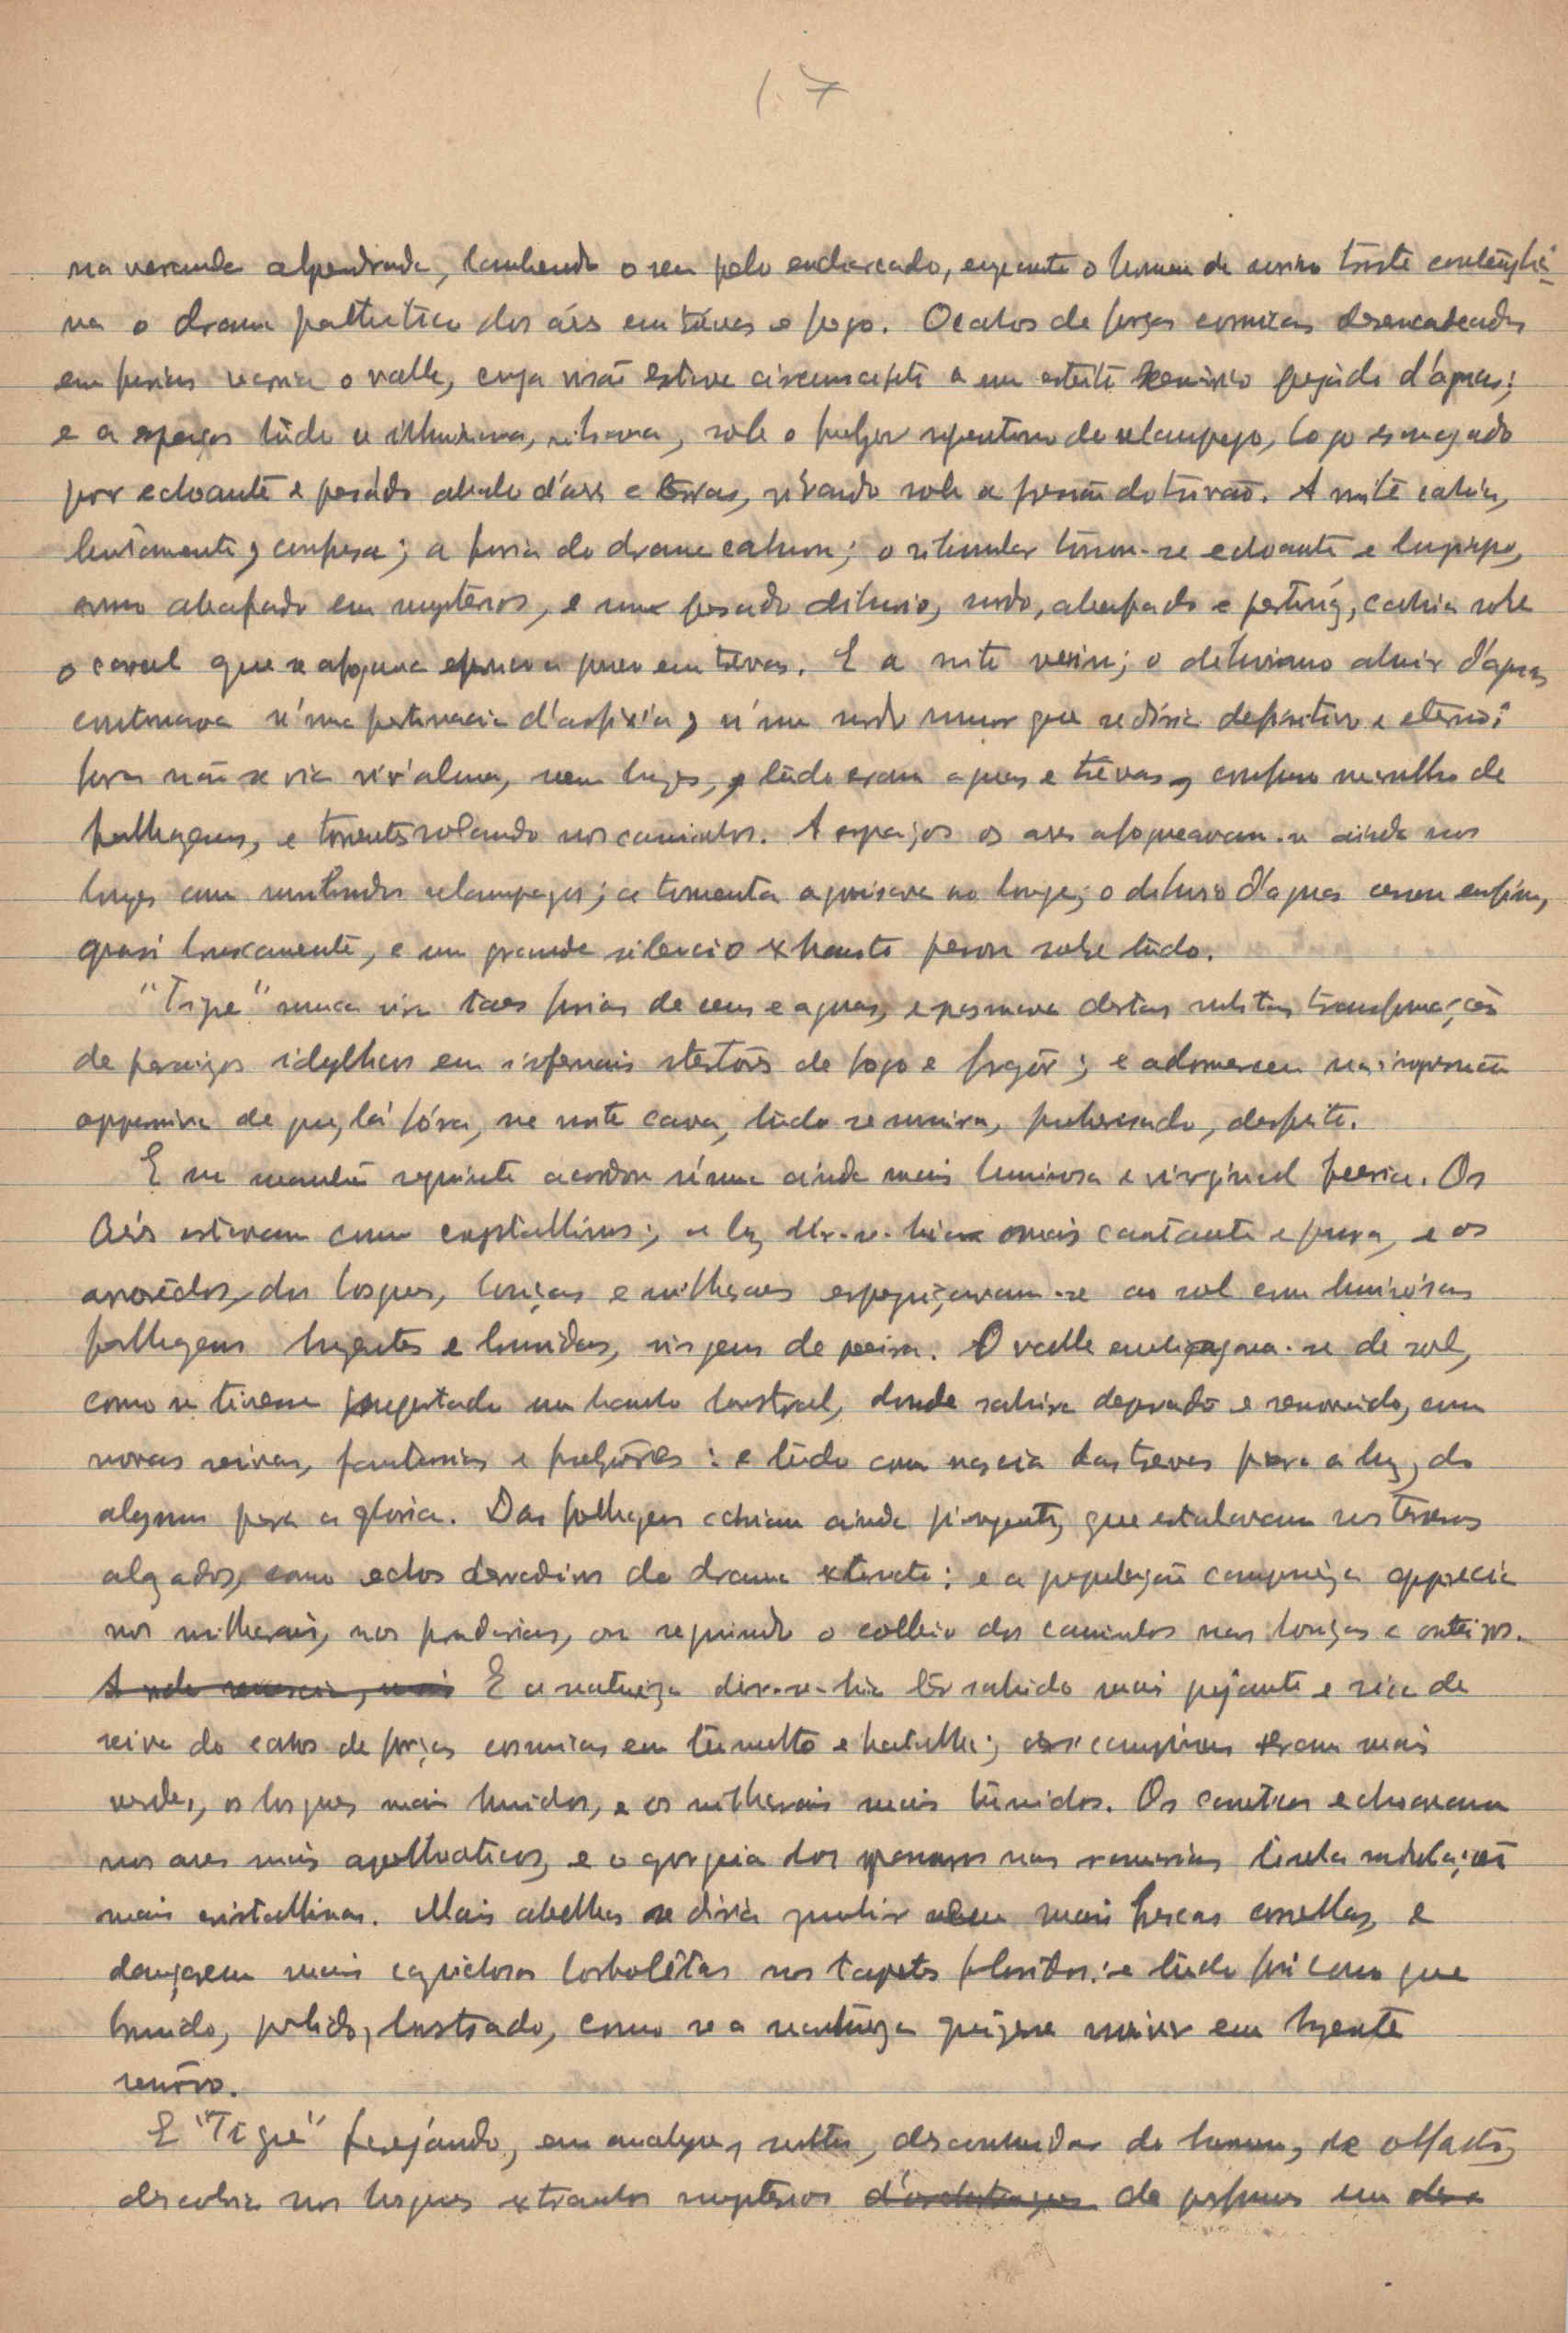 17
na varanda alpendrada, lambendo o seu pelo encharcado, emquanto o homem de sorriso triste contempla-
va o drama pathetico dos áres em trévas e fogo. O cahos de forças cosmicas desencadeadas
em furias varria o valle, cuja visão estava circumscripta a um estreito scenário pejado d'águas;
e a espaços tudo se illuminava, vibrava, sob o fulgor repentino do relampago, logo esmagado
por echoante e pesádo abalo d'áres e terras, vibrando sob a pressão do trovão. A noite cahia,
lentamente, confusa; a furia do drama calmou; o ribombar tornou-se echoante e longinquo,
como abafado em mysterios, e um pesado diluvio, surdo, abafado e pertináz, cahia sobre
o casal que se afogava pouco a pouco em trévas. E a noite veiu; o diluviano ahuir d'aguas
continuava n'uma pertinacia d'asfixia, n'um surdo rumor que se diria definitivo e eterno;
fóra não se via viv'alma, nem luzes, tudo eram aguas e trévas, confuso marulho de
folhagens, e torrentes rolando nos caminhos. A espaços os ares afogueavam-se ainda nos
longes com relampagos; a tormenta agonisava ao longe; o diluvio d'aguas cessou enfim,
quasi bruscamente, e um grande silencio exhausto pesou sobre tudo.
"Tigre" nunca vira taes furias de ceus e aguas, e pasmava destas subitas transformações
de paraizos idyllicos em infernais de fogo e fragôr; e adormeceu na impressão
oppressiva de que, lá fóra, na noite cava, tudo se sumira, pulverisado, desfeito.
E na manhã seguinte acordou n'uma ainda mais luminosa e virginal feeria. Os
áres estavam como crystallinos; a luz dir-se-hia mais cantante e pura, e os
arvorêdos, dos bosques, bouças e milharaes espreguiçavam-se ao sol com luminosas
folhagens lugentes e humidas, virgens de poeira. O valle embriagava-se de sol,
como se tivesse supportado um banho lustral, donde sahira depurado e renovado, com
novas seivas, fantasias e fulgôres: e tudo como nascia das trevas para a luz, do
abysmo para a gloria. Das folhagens cahiam ainda pingentes, que estalavam nos terrenos
alagados, como echos derradeiros do drama extincto: e a população campezina apparecia
nos milharais, nas pradarias, ou seguindo o colleio dos caminhos nas bouças e outeiros.
E a natureza dir-se-hia têr sahido mais pujante e rica de
seiva do cahos de forças cosmicas em tumulto e batalha; as campinas eram mais
verdes, os bosques mais humidos, e os milharais mais túmidos. Os canticos echoavam
nos ares mais apotheoticos, e o gorgeio dos passaros nas ramarias tinha modulações
mais cristallinas. Mais abelhas se diria zumbir em mais frescas corollas, e
dançarem mais caprichosas borbolêtas nos tapetes floridos: e tudo foi como que
brunido, polido, lustrado, como se a natureza quizesse reviver em lugente
renôvo.
E "Tigre" farejando, em analyses subtis, desconhecidas do homem, de olfacto,
descobria nos bosques extranhos mysterios de perfumes em